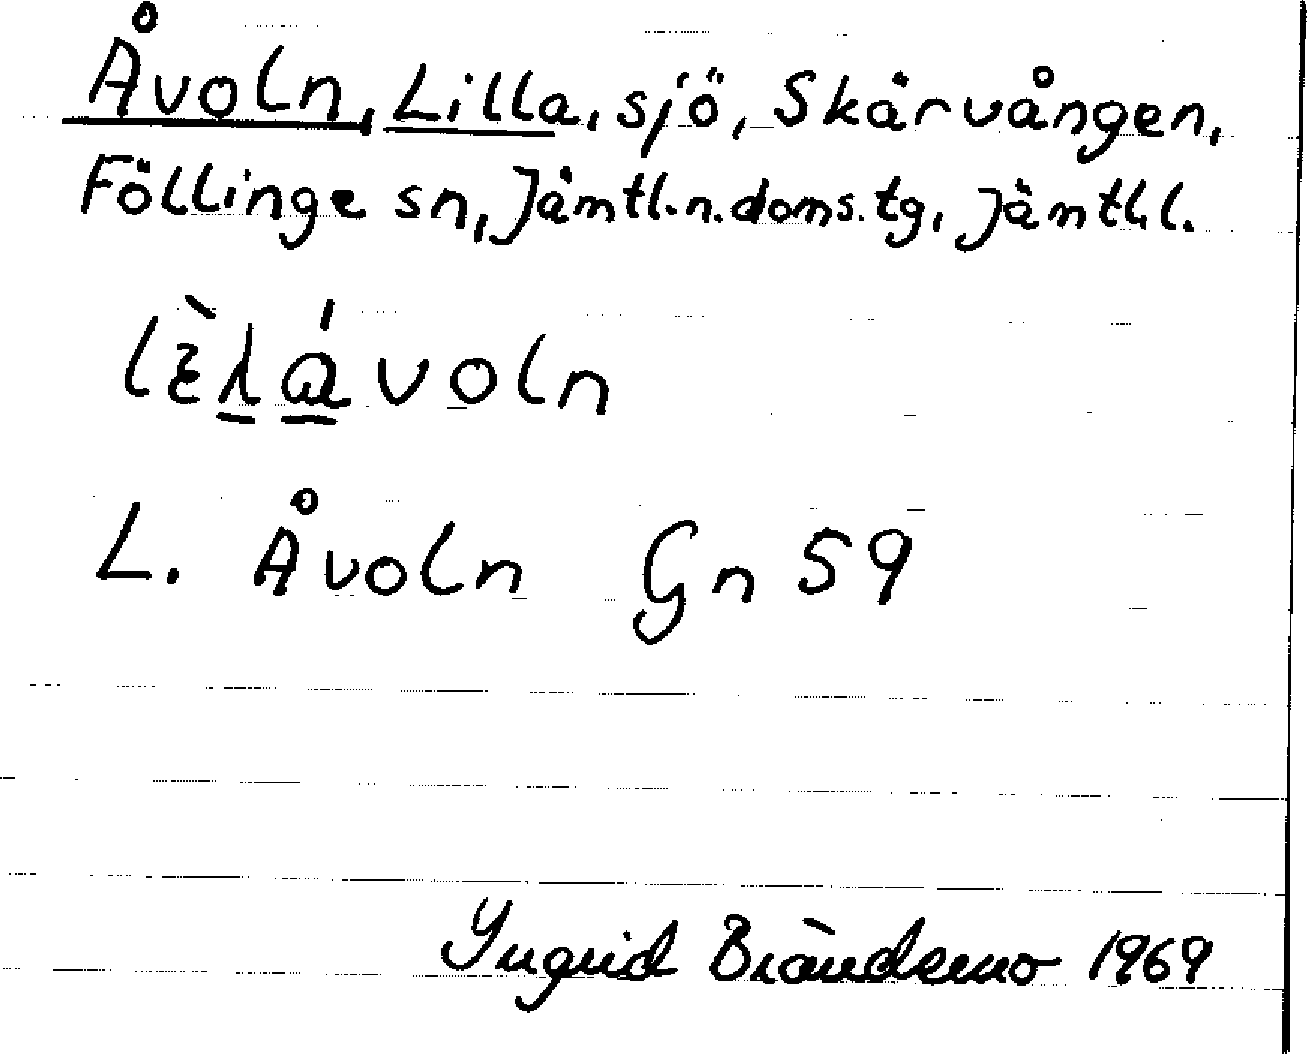 Åvoln, Lilla, sjö, Skärvången,
Föllinge sn, Jämtl.n.doms.tg, Jämtl.l.
L. Åvoln Gn 59
Ingrid Brändemo 1969